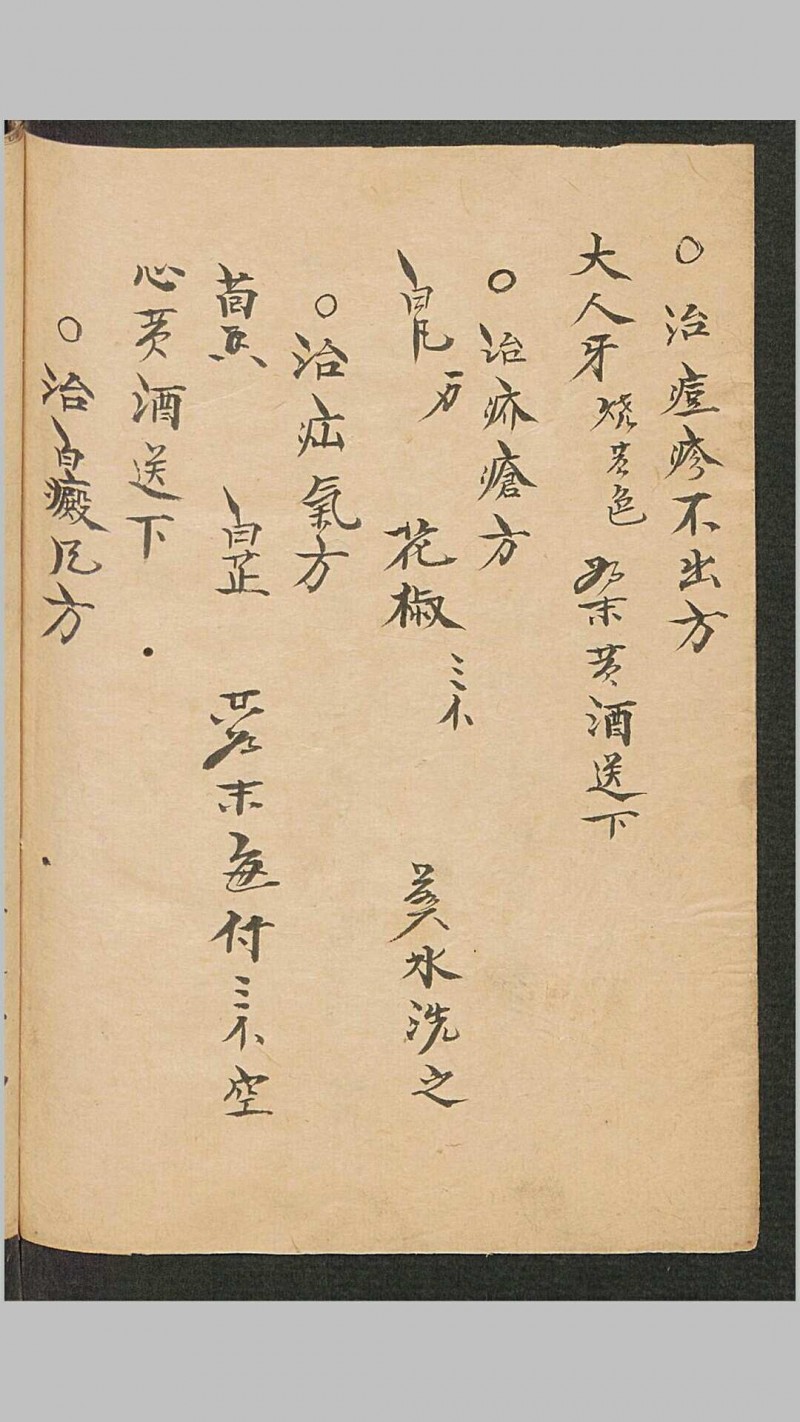 ○治痘疹不出方
大人牙 燒黃色 為末黃酒送下
○治疥瘡方
白凡 一刄 花椒 三钱 煎水洗之
○治疝氣方
茴香 白芷 共為末每付三钱空
心黃酒送下
○治白癜风方